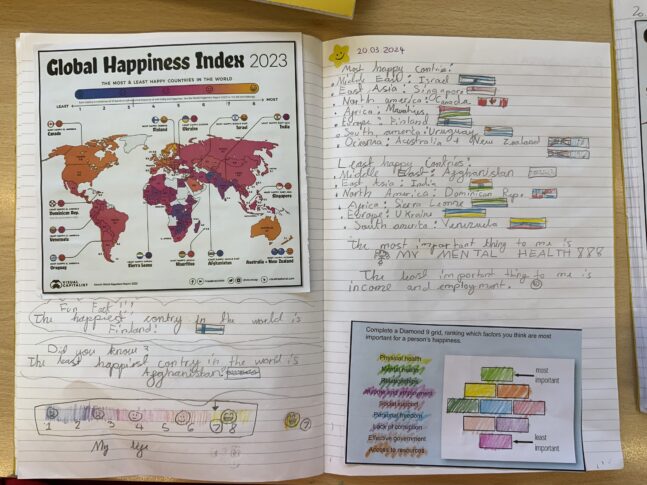 Global Happiness Index 2023
THE MOST & LEAST HAPPY COUNTRIES IN THE WORLD
LEAST
MOST
Canada
Finland
Ukraine
Israel
India
Dominican Rep.
Venezuela
Uruguay
Sierra Leone
Mauritius
Afghanistan
Singapore
Australia + New Zealand
VISUAL CAPITALIST
Fun Fact!!!
The happiest contry in the world is
Finland!
Did you know?
The least happiest contry in the world is
Afghanistan!
1 2 3 4 5 6 7 8
7
My life
20.03.2024
Most happy Contries:
Middle East: Israel
East Asia: Singapore
North america: Canada
Africa: Mauritius
Europe: Finland
South america: Uruguay
Australia + New Zealand
Least happy Contries:
Middle East: Afghanistan
East Asia: India
North America: Dominican Rep.
Africa: Sierra Leonne
Europe: Ukraine
South america: Venezuela
The most important thing to me is
MY MENTAL HEALTH
The least important thing to me is
income and employment.
Complete a Diamond 9 grid, ranking which factors you think are most
important for a person's happiness.
Physical health
Mental health
Relationships
Income and employment
Social support
Personal freedom
Lack of corruption
Effective government
Access to resources
most
important
least
important